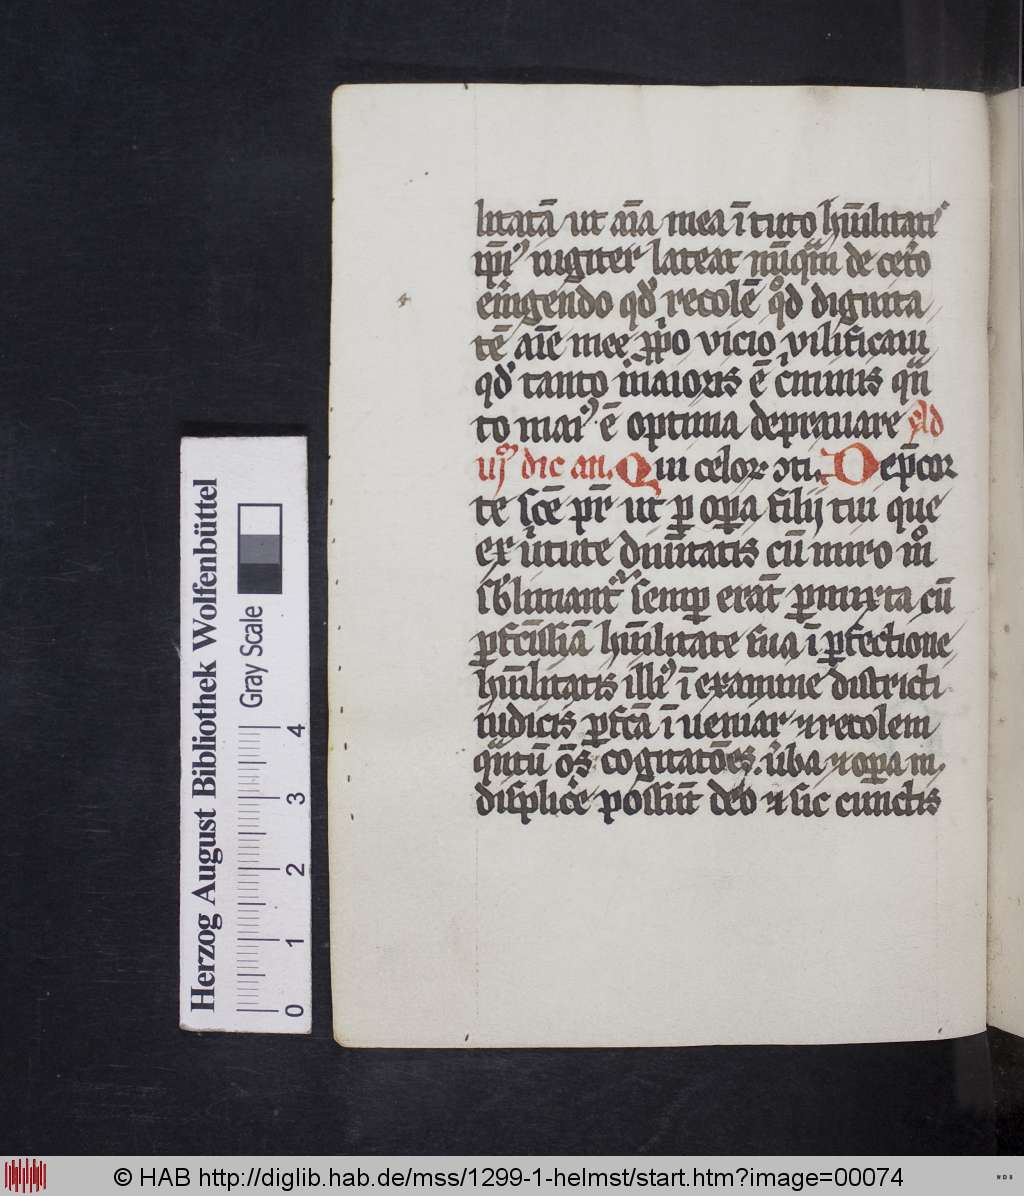 litatā ut aīa mea ī tuto hūilitate
ip̄iꝰ iugiter lateat nūqͣm de cet̉o
em̉gendo qd' recolē qͦd dignita
tē aīe mee ꝓp̉o vicio vilificaui
qd' tanto maioris ē c̉minis qͣn
to maiꝰ ē optima deprauare Ad
uꝰ dic an. Qui celoꝝ ↄti. Dep̄cor
te sc̄e pr̄ ut ꝑ oꝑa filij tui que
ex v̉tute diuīitatis cū miro mͦ
sb̉limant᷑ semꝑ erāt ꝑmixta cū
ꝑfc̄issīa hūilitate sua ī ꝑfectione
hūilitatis illiꝰ ī examine districti
iudicis ꝑfcā īueniar ⁊ recolem
qͣntū ōs̄ cogitatōēs. v̉ba ⁊ oꝑa m
displicẻ possūt deo ⁊ sic cunctis
Herzog August Bibliothek Wolfenbüttel
Gray Scale
0 1 2 3 4
© HAB http://diglib.hab.de/mss/1299-1-helmst/start.htm?image=00074